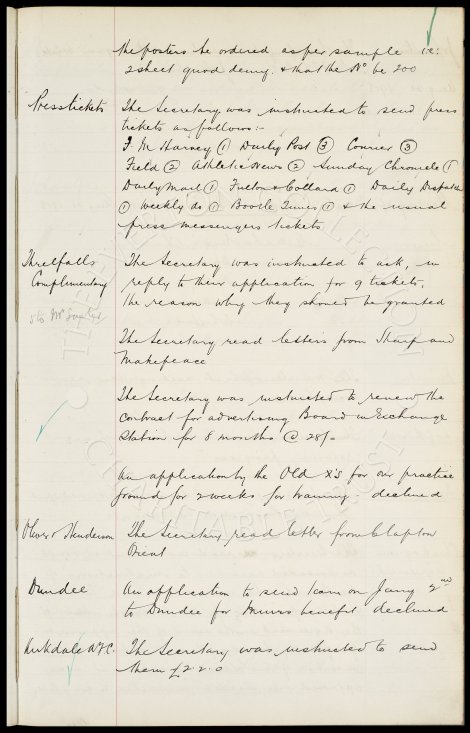 the posters be ordered as per sample i.e:
2 sheet quad demy. & that the No be 200
Press tickets The Secretary was instructed to send press
tickets as follows:-
F. M. Harvey (1) Daily Post (3) Courier (3)
Field (2) Athletic News (2) Sunday Chronicle (1)
Daily Mail (1) & Collard (1) Daily Dispatch
(1) Weekly do (1) Bootle Times (1) & the usual
press messengers tickets
Threlfalls Complimentary
The Secretary was instructed to ask, in
reply to their application for 9 tickets,
the reason why they should be granted
5 to Mr
The Secretary read letters from Sharp and
Makepeace
The Secretary was instructed to renew the
contract for advertising Board in Exchange
Station for 8 months @ 28/-
An application by the Old X's for our practice
ground for 2 weeks for training - declined
Oliver & Henderson The Secretary read letter from Clapton
Orient
Dundee An application to send team on Jany 2nd
to Dundee for benefit declined
Kirkdale A.F.C. The Secretary was instructed to send
them £2.2.0
THE EVERTON COLLECTION
CHARITABLE TRUST